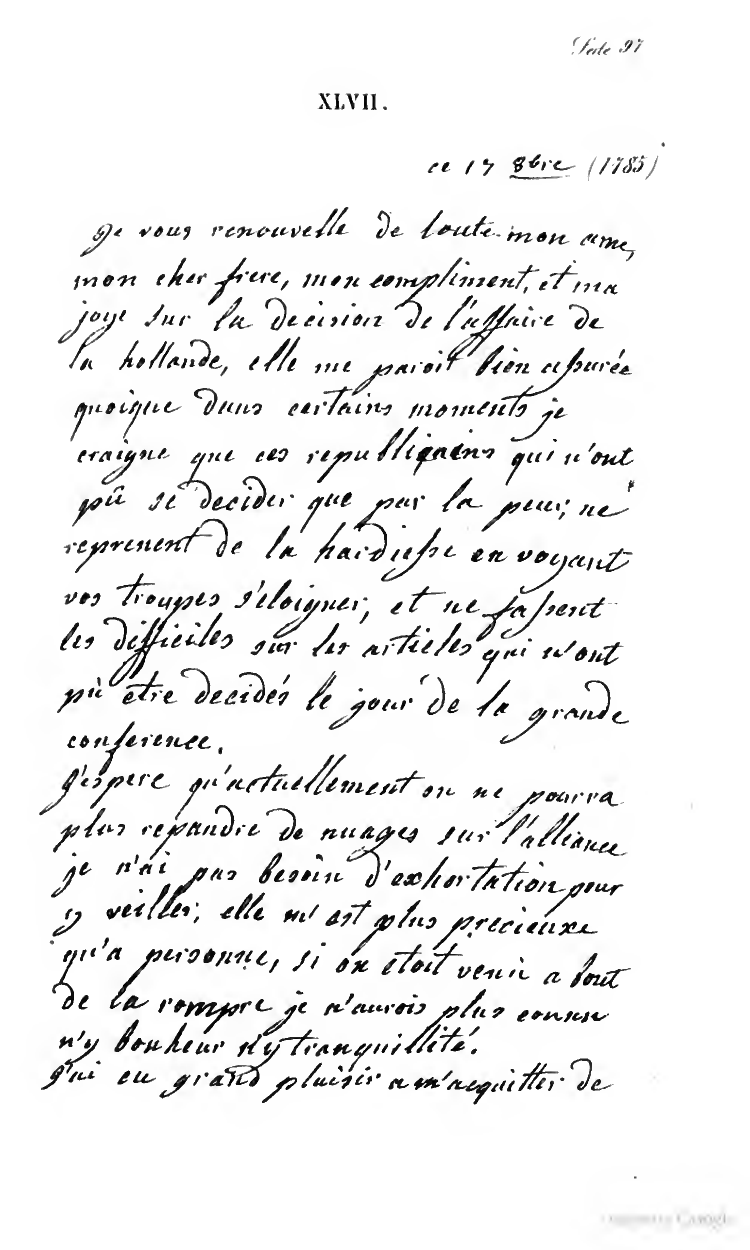 Seite 97
XLVII.
ce 17 8bre (1785)
Je vous renouvelle de toute mon ame,
mon cher frere, mon compliment, et ma
joye sur la decision de l'affaire de
la hollande, elle me paroit bien assurée
quoique dans certains moments je
craigne que ces republiquains qui n'ont
pû se decider que par la peur, ne
reprenent de la hardiesse en voyant
vos troupes s'éloigner, et ne fassent
les difficiles sur les articles qui n'ont
pû etre decidés le jour de la grande
conference.
J'espere qu'actuellement on ne pourra
plus repandre de nuages sur l'alliance
je n'ai pas besoin d'exhortation pour
y veiller, elle m'est plus precieuxe
qu'a personne, si on étoit venu a bout
de la rompre je n'aurois plus connu
n'y bonheur n'y tranquillité.
J'ai eu grand plaisir a m'acquitter de